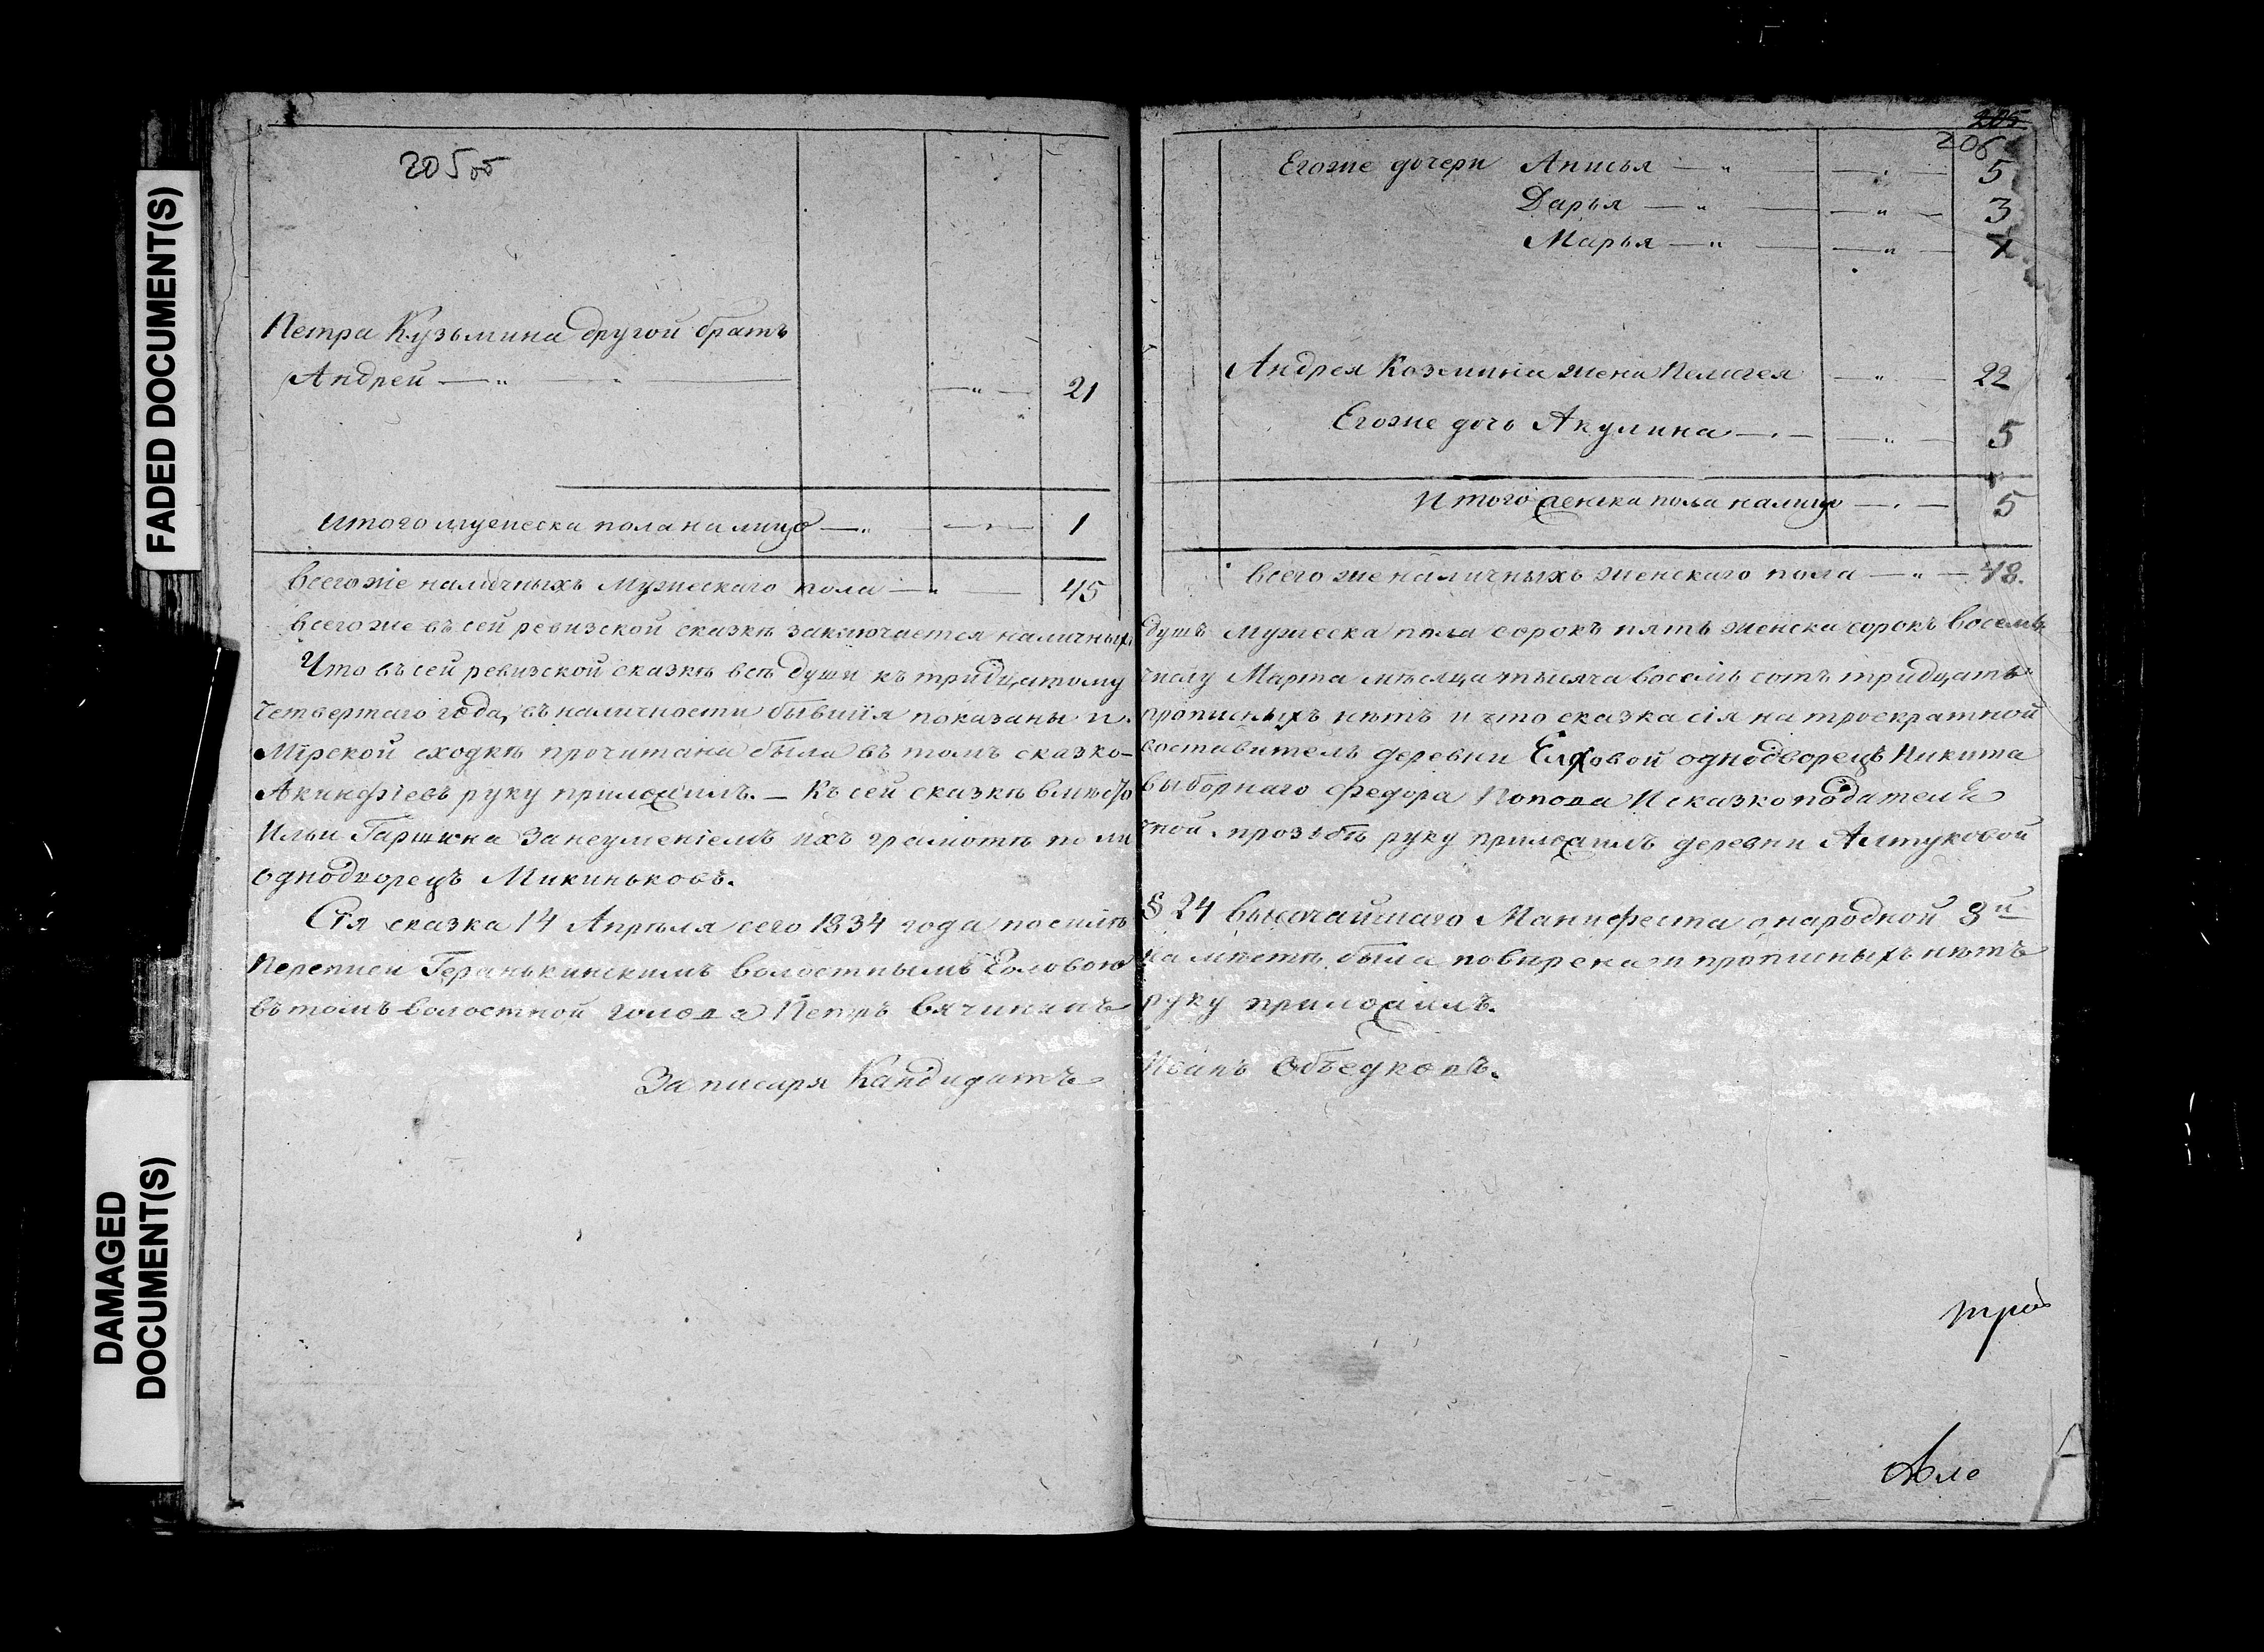 FADED DOCUMENT(S)
DAMAGED
DOCUMENT(S)
205 об
Петра Кузьмина другой братъ
Андрей — " — " — 21
итого мужеска пола на лицо — " — 1
всегоже наличныхъ мужескаго пола — " — 45
всегоже въ сей ревизской сказкѣ заключается наличныхъ
Что въ сей ревизской сказкѣ всѣ души къ тридцатому
четвертаго года, въ наличности бывшiя показаны и
Мiрской сходкѣ прочитана была въ томъ сказко-
Акинфiевъ руку приложилъ. — Къ сей сказкѣ вмѣсто
Ильи Гаршина за неуменiемъ ихъ грамотѣ по ли
однодворецъ Микиньковъ.
Сiя сказка 14 Апрѣля сего 1834 года по силѣ
Переписи Геранькинскимъ волостнымъ Головою
въ томъ волостной голова Петръ Вячинъ
За писаря Кандидатъ
205
206
Егоже дочери Анисья — " — 5
Дарья — " — 3
Марья — "
Андрея Козмина жена Пелагея — " — 22
Егоже дочь Акулина — " — 5
Итого женска пола налицо — " — 5
всего же наличныхъ женскаго пола — " — 48.
душъ мужеска пола сорокъ пять женска сорокъ восемь
числу Марта мѣсяца тысяча восемь сотъ тридцать
прописныхъ нѣтъ и что сказка сiя на троекратной
составитель деревни Елховой однодворецъ Никита
выборнаго Федора Попова И сказкоподателя
чной прозьбѣ руку приложилъ деревни Алтуковой
§ 24 высочайшаго Манифеста о народной 8й
на мѣстѣ была повѣрена и прописныхъ нѣтъ
руку приложилъ.
Иванъ Объедковъ.
трой
Але